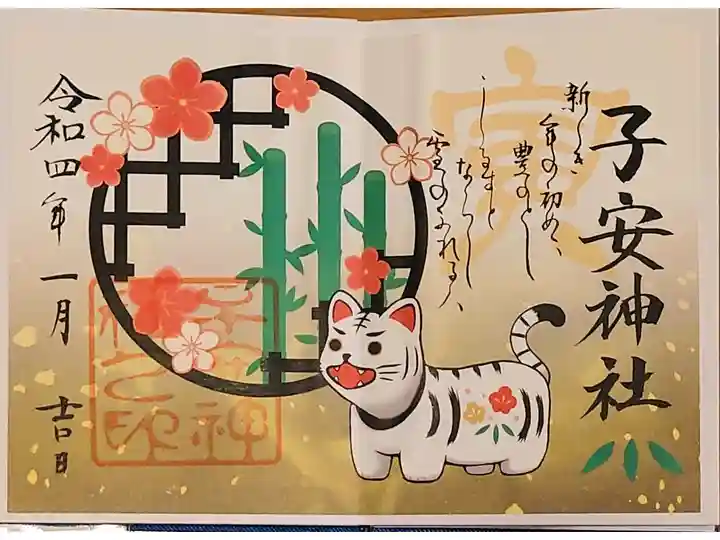 子安神社
寅
新しき
年の初めに
豊のとし
しるすと
ならし
雪のふれるは
令和四年一月 吉日
子安神社之印